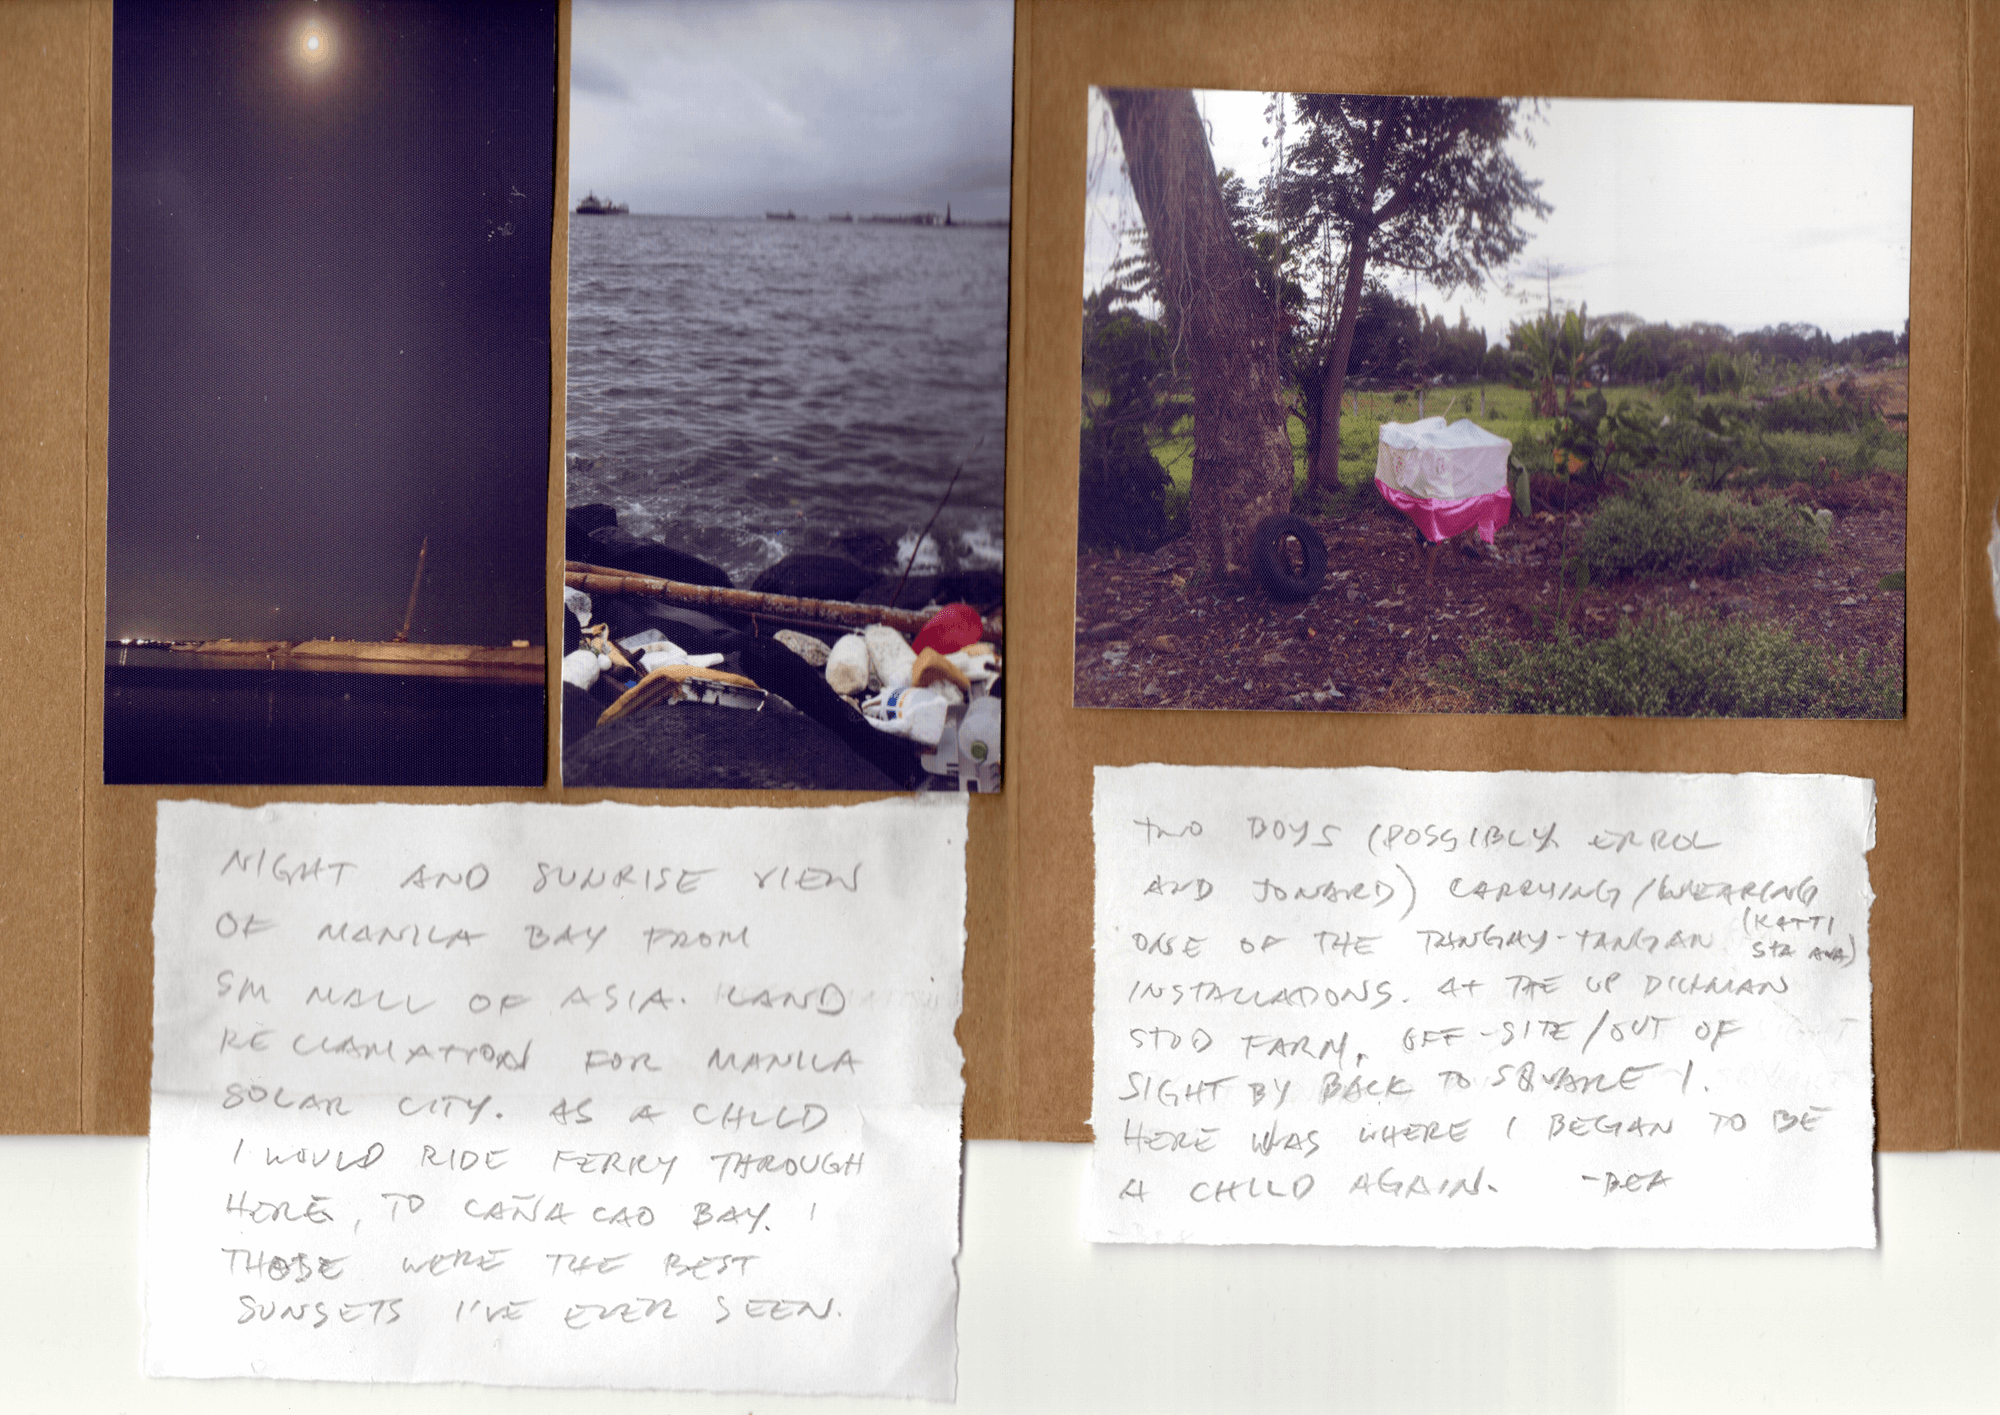 NIGHT AND SUNRISE VIEW
OF MANILA BAY FROM
SM MALL OF ASIA. LAND
RECLAMATION FOR MANILA
SOLAR CITY. AS A CHILD
I WOULD RIDE FERRY THROUGH
HERE, TO CAÑACAO BAY.
THOSE WERE THE BEST
SUNSETS I'VE EVER SEEN.
TWO BOYS (POSSIBLY ERROL
AND JONARD) CARRYING/WEARING
ONE OF THE TANGAY-TANGAN (KATTI
STA ANA)
INSTALLATIONS. AT THE UP DILIMAN
STUD FARM. OFF-SITE/OUT OF
SIGHT BY BACK TO SQUARE 1.
HERE WAS WHERE I BEGAN TO BE
A CHILD AGAIN. -BEA